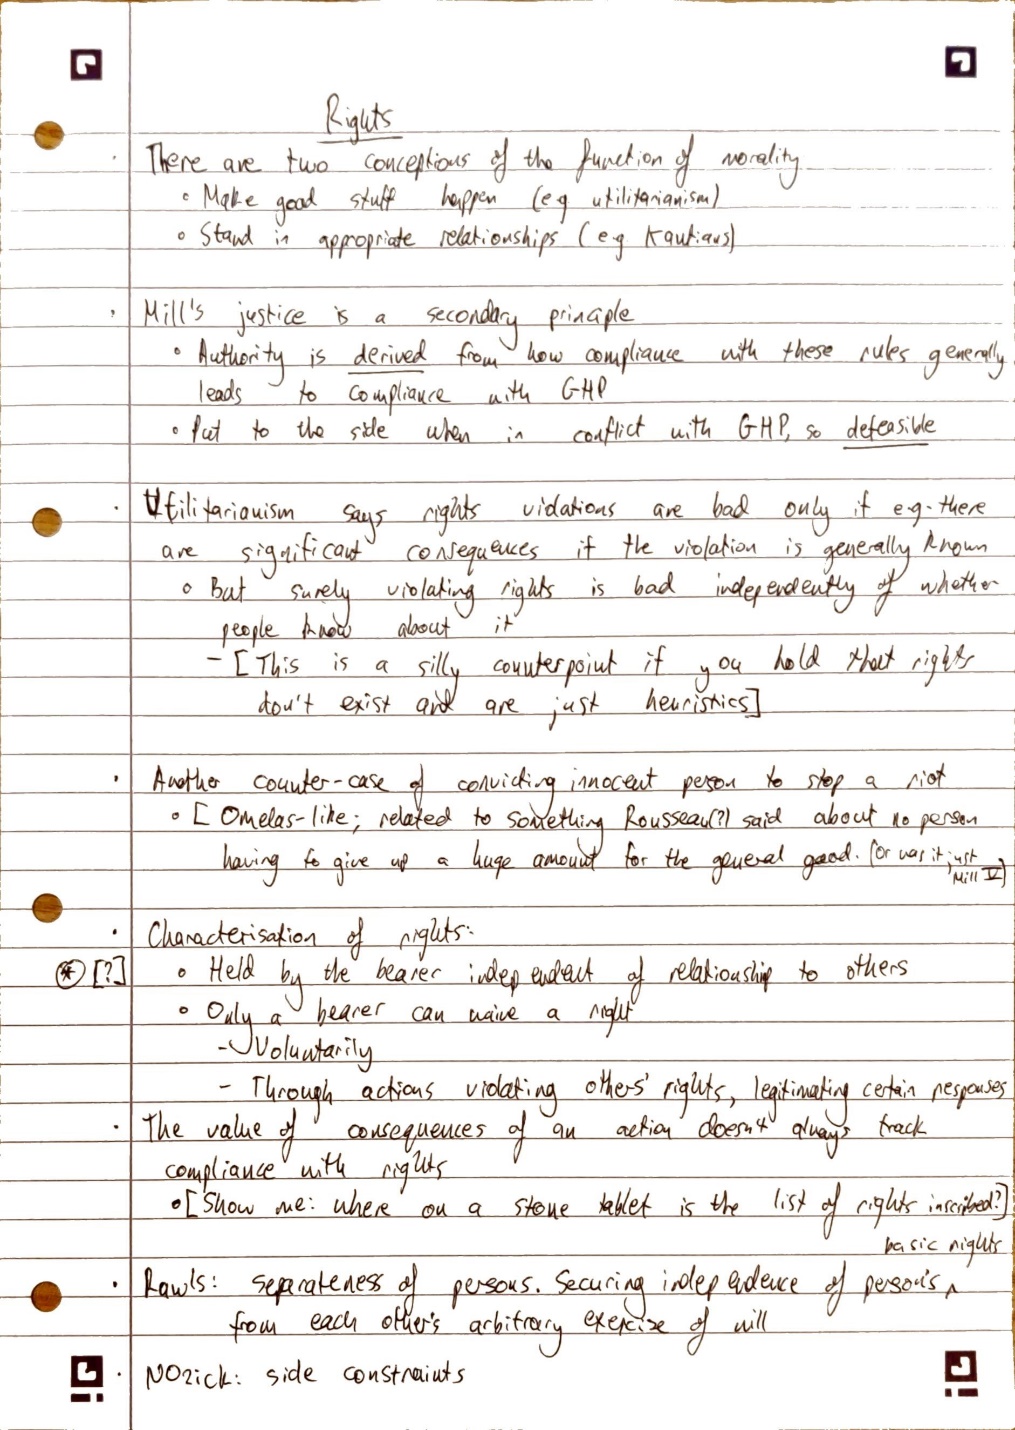 Rights
There are two conceptions of the function of morality
◦ Make good stuff happen (e.g utilitarianism)
◦ Stand in appropriate relationships (e.g Kantians)
Mill's justice is a secondary principle
◦ Authority is derived from how compliance with these rules generally
leads to compliance with GHP
◦ Put to the side when in conflict with GHP, so defeasible
Utilitarianism says rights violations are bad only if e.g. there
are significant consequences if the violation is generally known
◦ But surely violating rights is bad independently of whether
people know about it
- [This is a silly counterpoint if you hold that rights
don't exist and are just heuristics]
Another counter-case of convicting innocent person to stop a riot
◦ [Omelas-like; related to something Rousseau(?) said about no person
having to give up a huge amount for the general good. (or was it just
Mill V)
Characterisation of rights:
(*) [?] ◦ Held by the bearer independent of relationship to others
◦ Only a bearer can waive a right
- Voluntarily
- Through actions violating others' rights, legitimating certain responses
The value of consequences of an action doesn't always track
compliance with rights
◦ [Show me: where on a stone tablet is the list of rights inscribed?]
basic rights
Rawls: separateness of persons. Securing independence of person's ^
from each other's arbitrary exercise of will
NOzick: side constraints